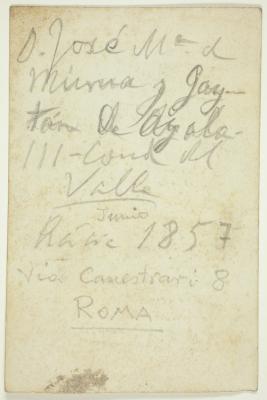 D. José Mª d
Murua y Gay-
tán de Ayala-
III-Cond dl
Valle
Junio
1857
Via Canestrari 8
ROMA